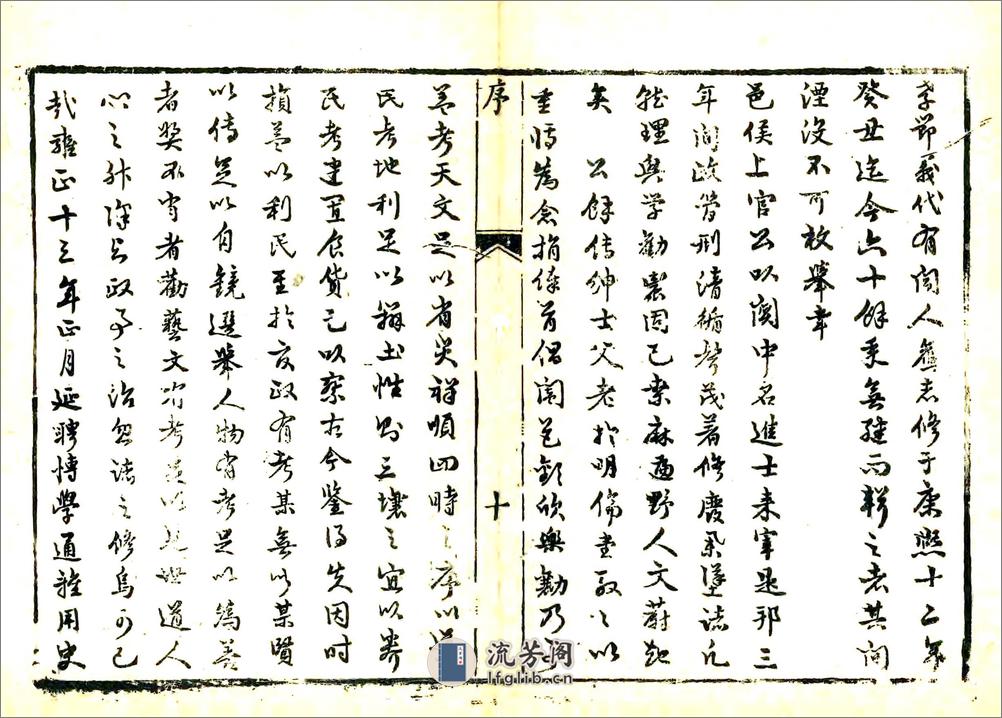 孝節義代有聞人舊志修于康熙十二年
癸丑迄今六十餘禾無繼而輯之者其間
湮沒不可枚舉幸
邑侯上官公以關中名進士来宰是邦三
年間政簡刑清循聲茂著修廢舉墜諸凡
理興學勸農固已桑麻遍野人文蔚起
矣 公餘傳紳士父老於明倫堂以
重為念捐俸首倡闔邑歡欣樂勸乃
葢考天文足以省災祥順四時之序以
民考地利足以辨土性則三壤之宜以養
民考建置食貨已以察古今鑒得失因時
損益以利民至於效政有考某無以某賢
以傳足以自鏡選舉人物有考足以為善
者奬不肖者勸藝文有考足以道人
心之除政事之治忽誌之修烏可已
哉雍正十三年正月延聘博學通雅用史
序
十
流芳阁
lfglib.cn